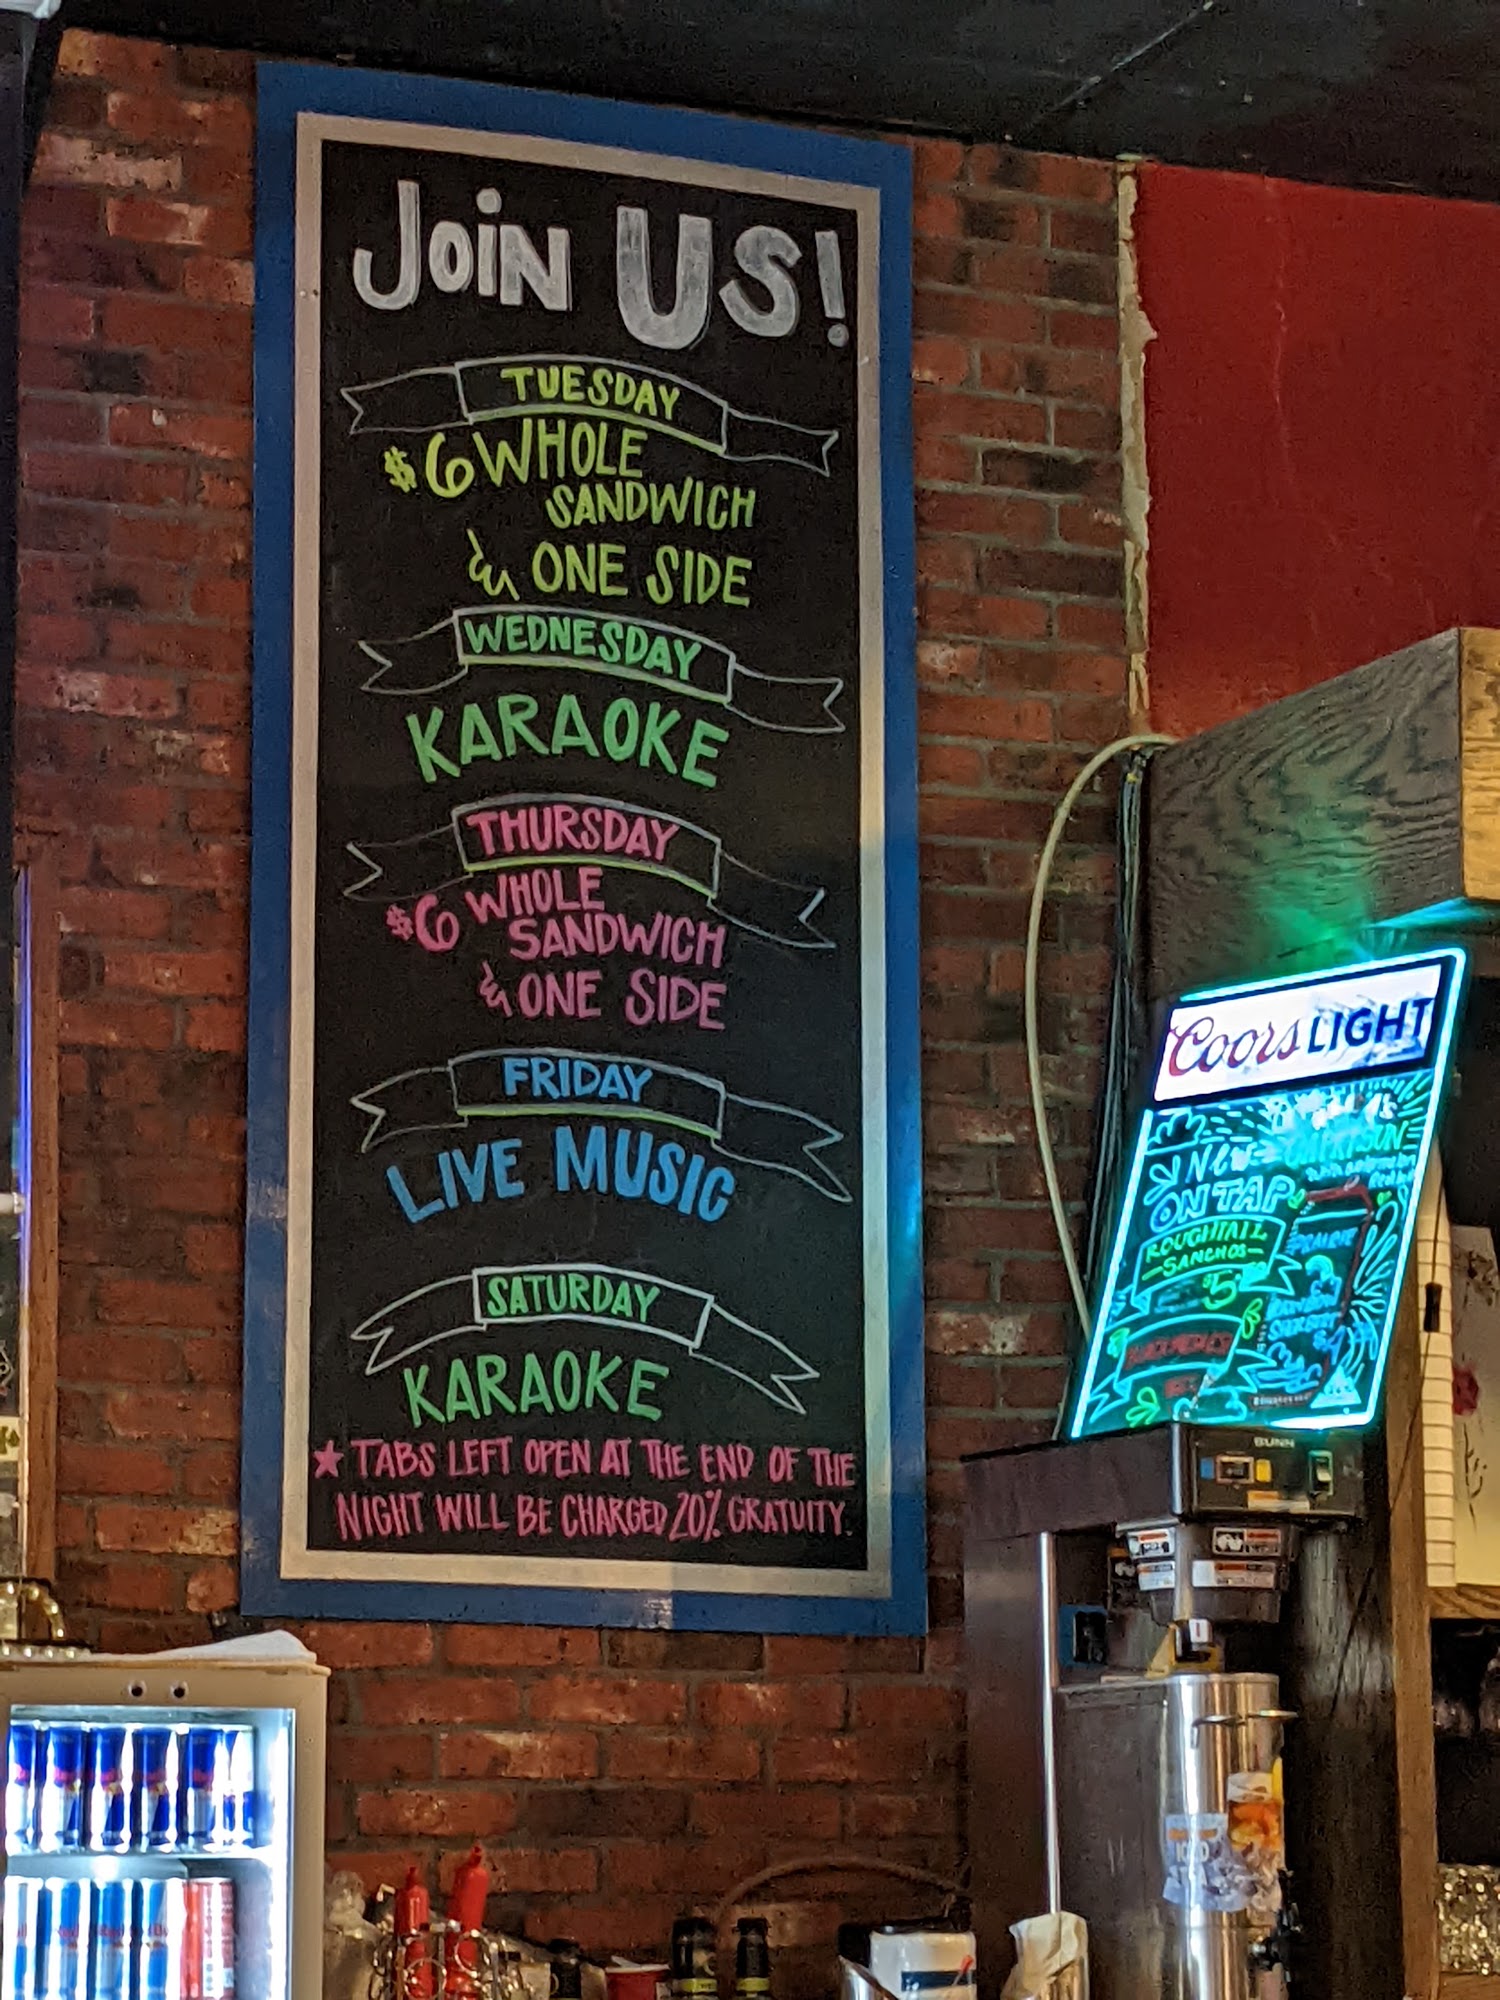 JOIN US!
TUESDAY
$6 WHOLE
SANDWICH
& ONE SIDE
WEDNESDAY
KARAOKE
THURSDAY
$6 WHOLE
SANDWICH
& ONE SIDE
FRIDAY
LIVE MUSIC
SATURDAY
KARAOKE
★ TABS LEFT OPEN AT THE END OF THE
NIGHT WILL BE CHARGED 20% GRATUITY.
Coors LIGHT
NEW
ON TAP
ROUGHTAIL
-SANCHOS-
$5
PRAIRIE
RAINBOW
SHERBET
BUNN